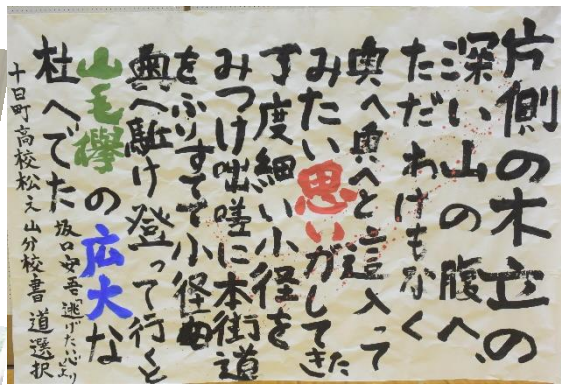 片側の木立の
深い山の腹へ、
ただわけもなく
奥へ奥へと這入って
みたい思いがしてきた
丁度細い小径を
みつけ咄嗟に本街道
をふりすてて小径を
奥へ駈け登って行くと
山毛欅の広大な
杜へでた 坂口安吾「逃げたい心」より
十日町高校松之山分校書道選択